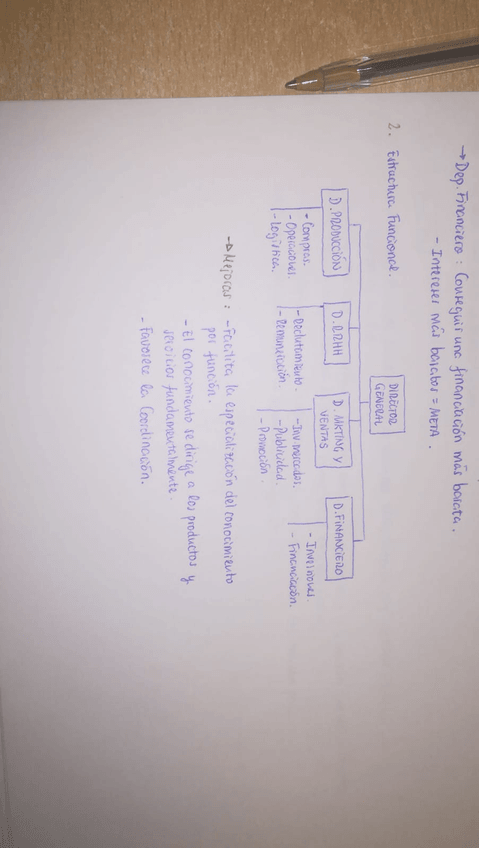 → Dep. Financiero : Conseguir una financiación más barata.
- Intereses más baratos = META.
2. Estructura Funcional.
DIRECTOR
GENERAL
D. PRODUCCIÓN
- Compras.
- Operaciones.
- Logística.
D. RRHH
- Reclutamiento.
- Remuneración.
D. MKTING Y
VENTAS
- Inv. mercados.
- Publicidad.
- Promoción.
D. FINANCIERO
- Inversiones.
- Financiación.
→ Mejoras : - Facilita la especialización del conocimiento
por función.
- El conocimiento se dirige a los productos y
servicios fundamentalmente.
- Favorece la Coordinación.